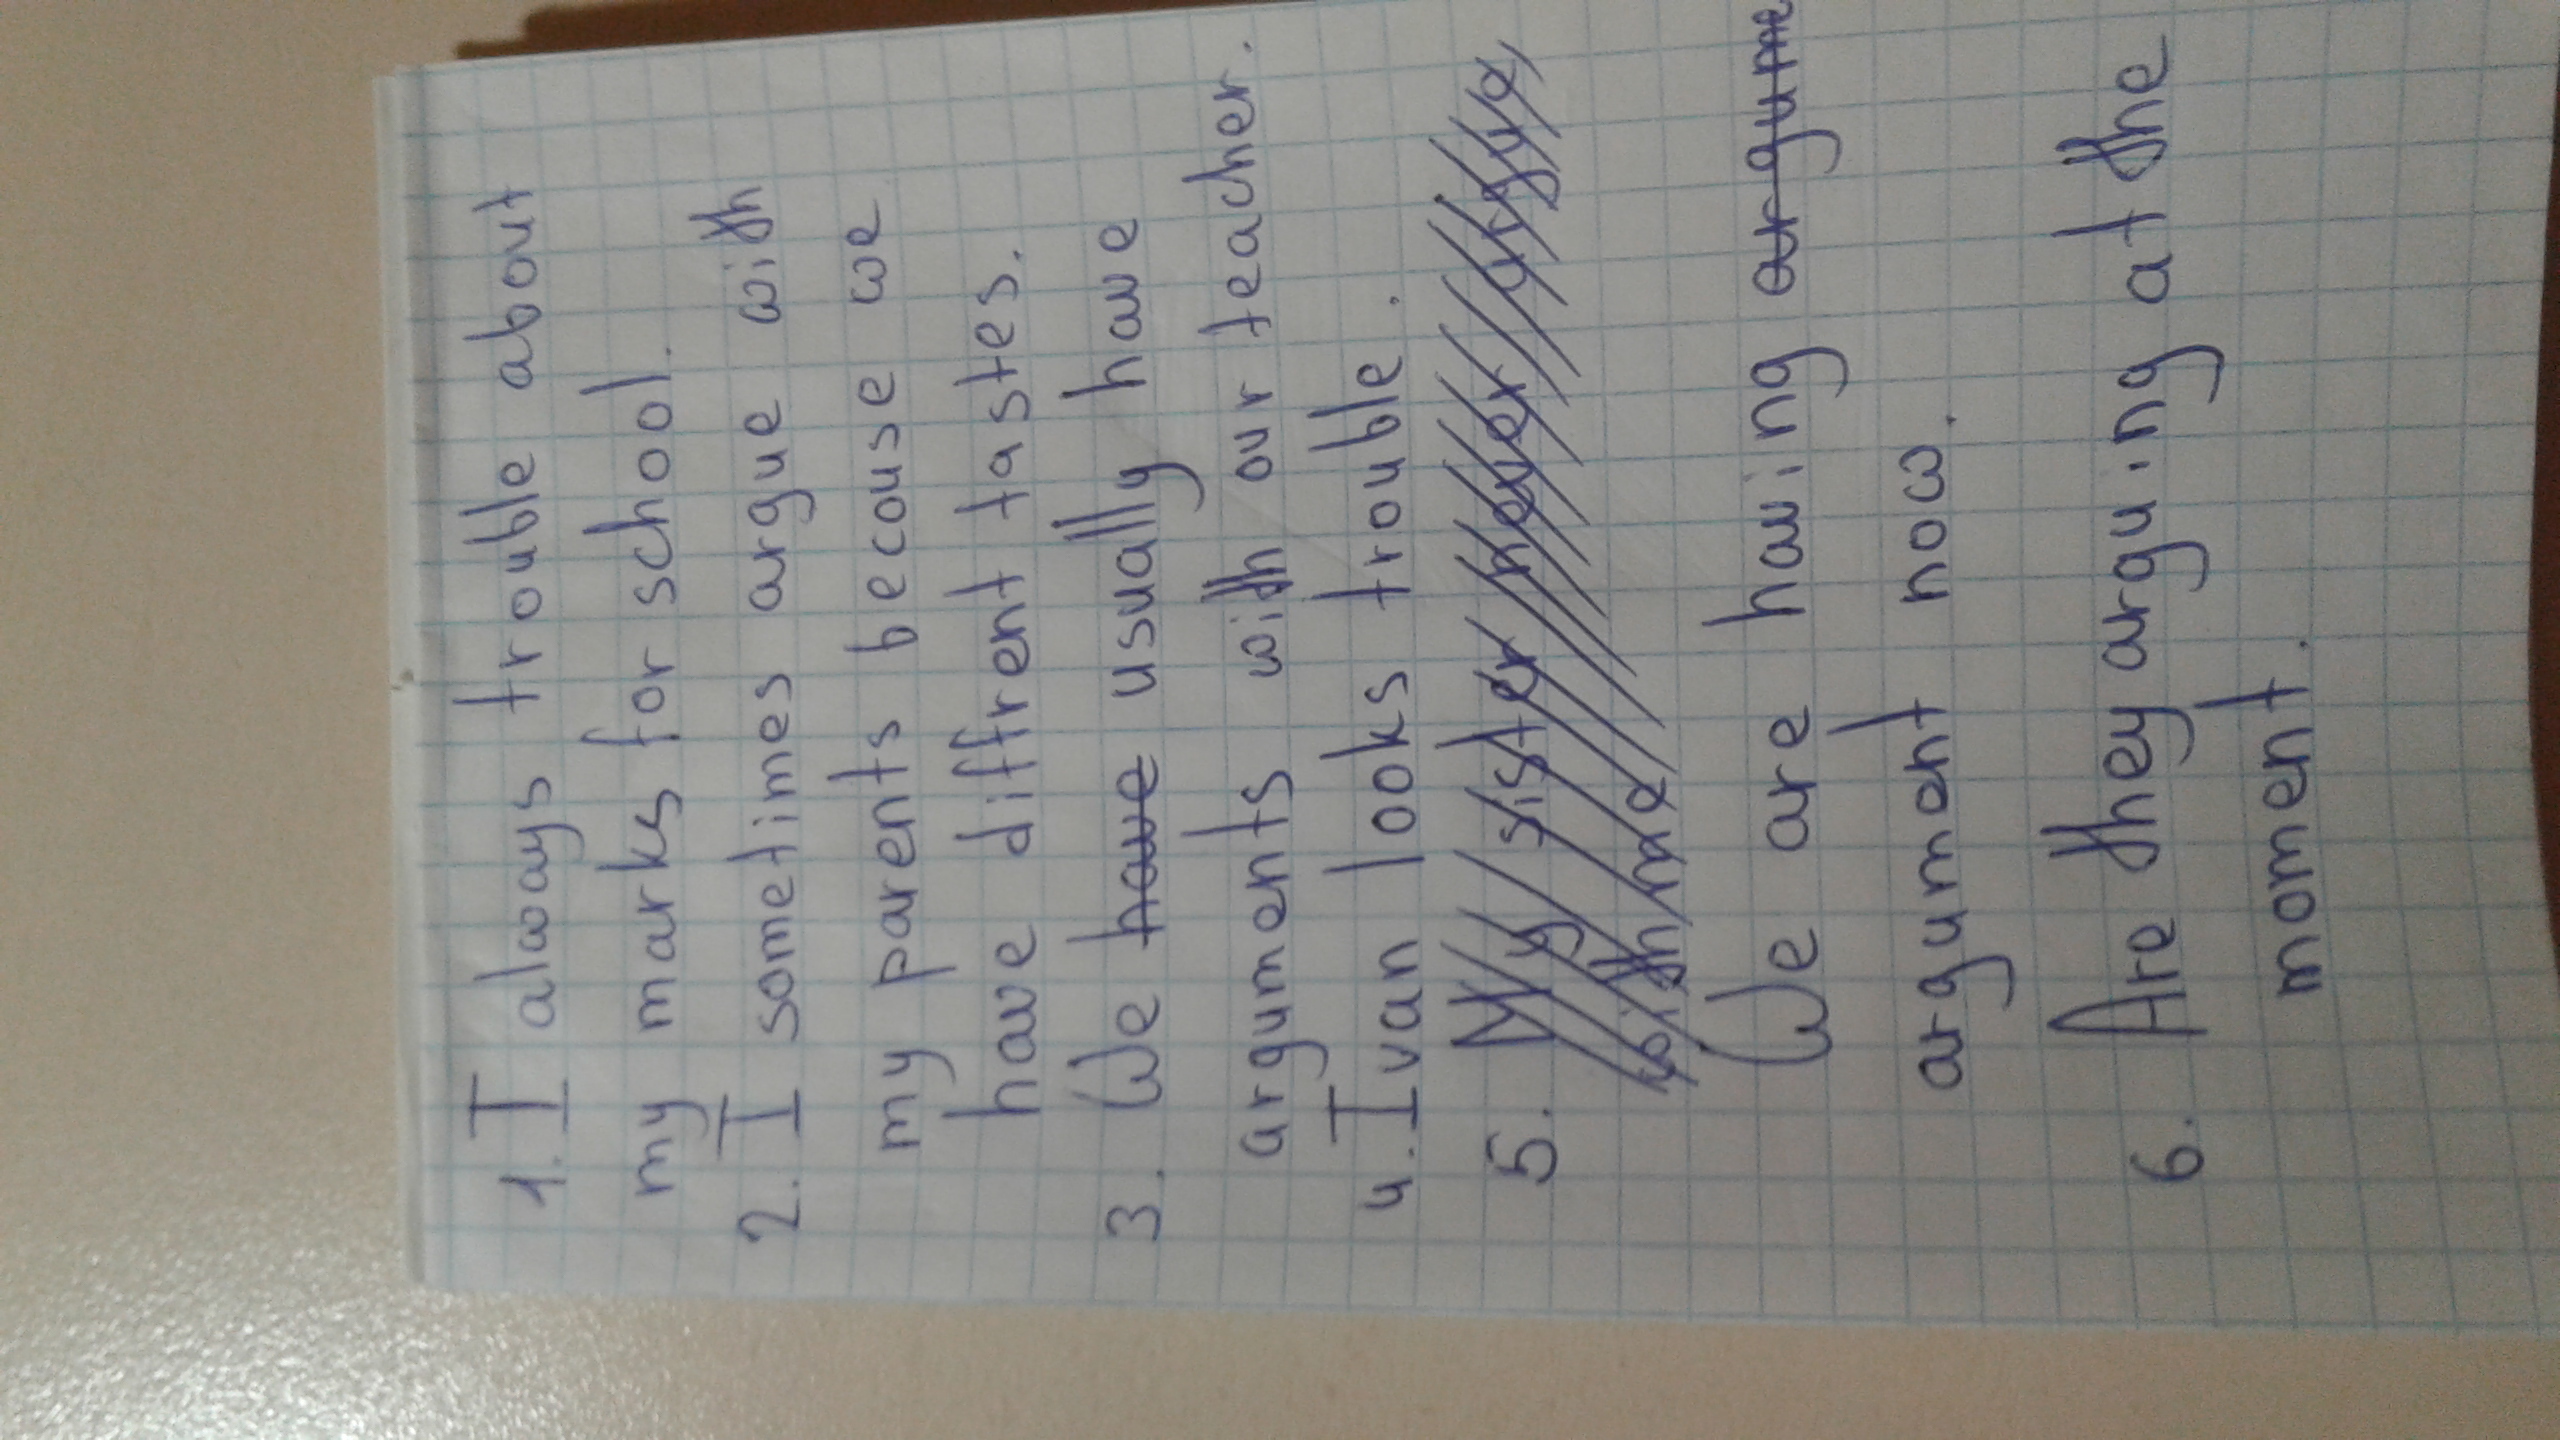 1. I always trouble about
my marks for school.
2. I sometimes argue with
my parents becouse we
have diffrent tastes.
3. We have usually have
arguments with our teacher.
4. Ivan looks trouble.
5. My sister never argue
with me
We are having argume
argument now.
6. Are they arguing at the
moment.